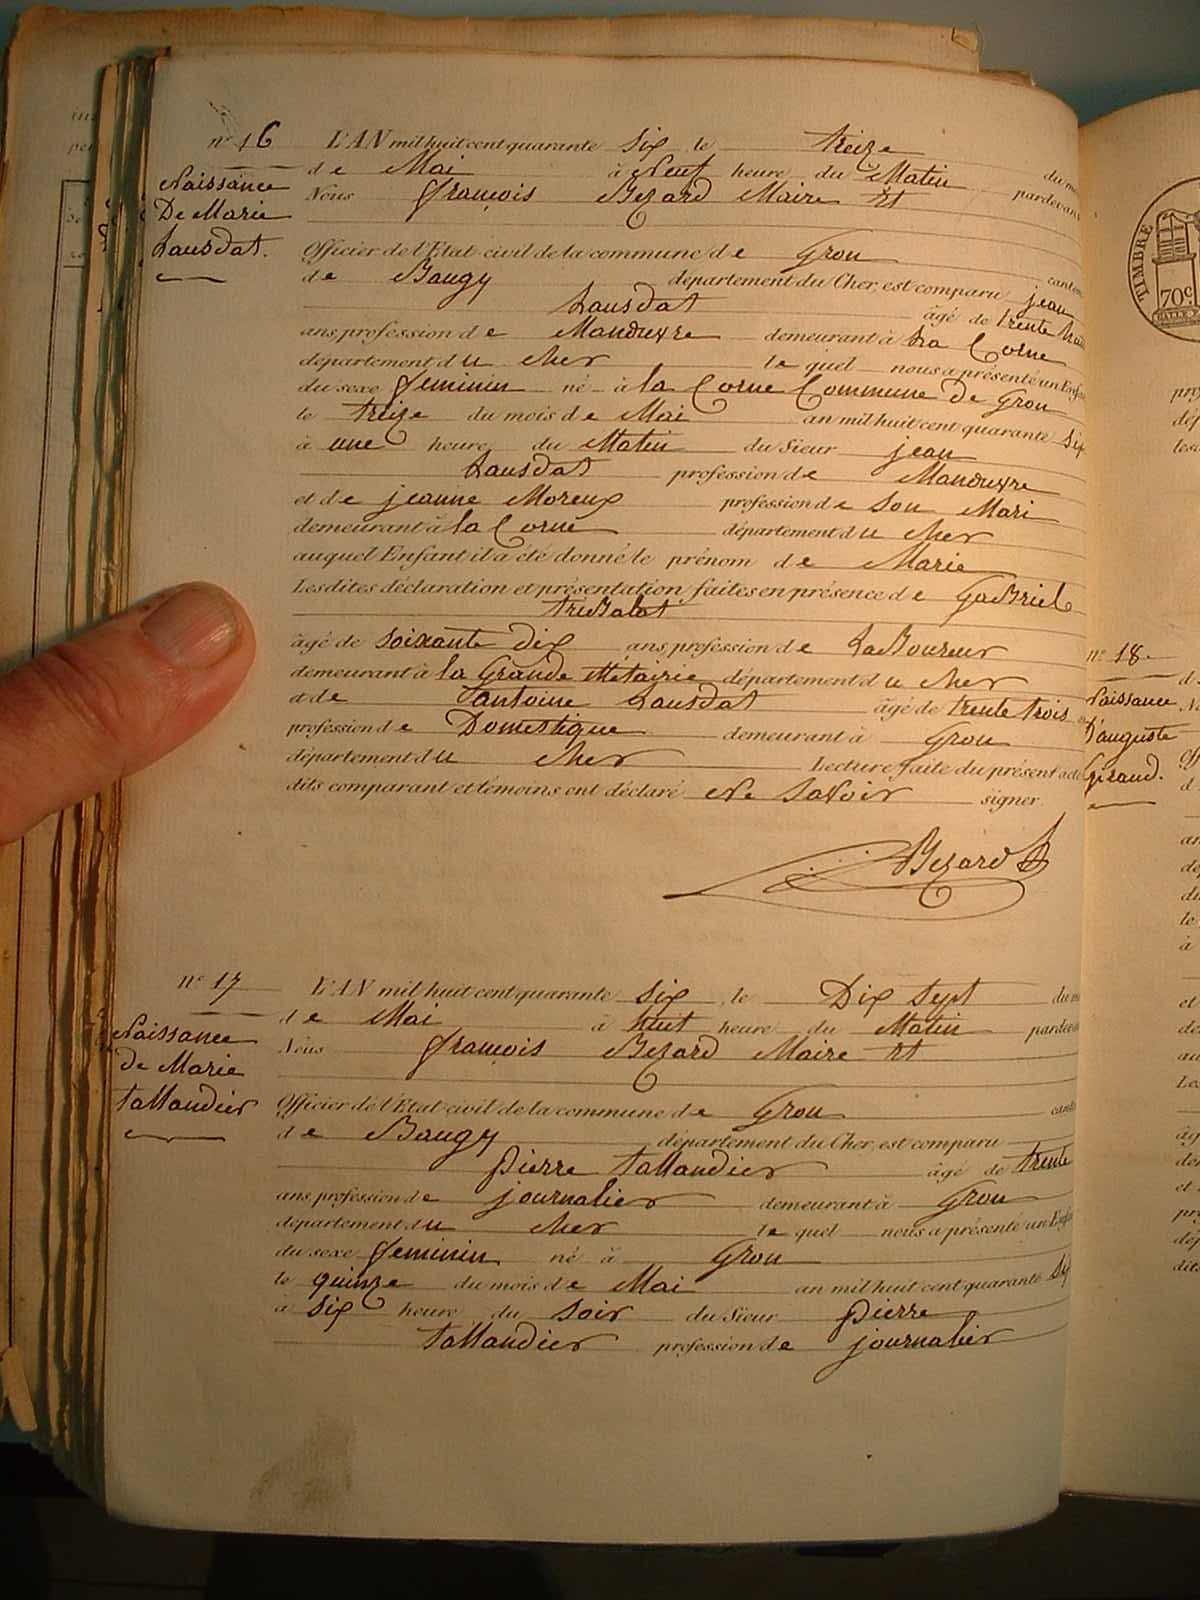 n° 16
Naissance
De Marie
Lausdat.
L'AN mil huit cent quarante six le treize
de Mai à Neuf heure du Matin du m
Nous François Bezard Maire Et pardevan
Officier de l'Etat civil de la commune de Gron
de Baugy département du Cher, est comparu canton
Lausdat jean
âgé de trente
ans, profession de Manœuvre demeurant à La Corne
département du cher le quel nous a présenté un Enfa
du sexe feminin né à la Corne Commune De Gron
le treize du mois de Mai an mil huit cent quarante six
à une heure du Matin du Sieur jean
Lausdat profession de Manœuvre
et de jeanne Moreux profession de Son Mari
demeurant à la Corne département du cher
auquel Enfant il a été donné le prénom de Marie
Lesdites déclaration et présentation faites en présence de Gabriel
trubalot
âgé de soixante dix ans profession de Laboureur
demeurant à la Grande Metairie département du cher
et de antoine Lausdat âgé de trente trois
profession de Domestique demeurant à Gron
département du cher Lecture faite du présent acte
dits comparant et témoins ont déclaré Ne Savoir signer.
Bezard
n° 17
Naissance
de Marie
tallandier
L'AN mil huit cent quarante six le Dix sept du m
de Mai à huit heure du Matin pardevan
Nous François Bezard Maire Et
Officier de l'Etat civil de la commune de Gron cant
de Baugy département du Cher, est comparu
pierre tallandier âgé de trente
ans profession de journalier demeurant à Gron
département du cher le quel nous a présenté un Enfa
du sexe feminin né à Gron
le quinze du mois de Mai an mil huit cent quarante six
à six heure du soir du Sieur pierre
tallandier profession de journalier
n° 18.
Naissance
D'auguste
Giraud.
TIMBRE
70c